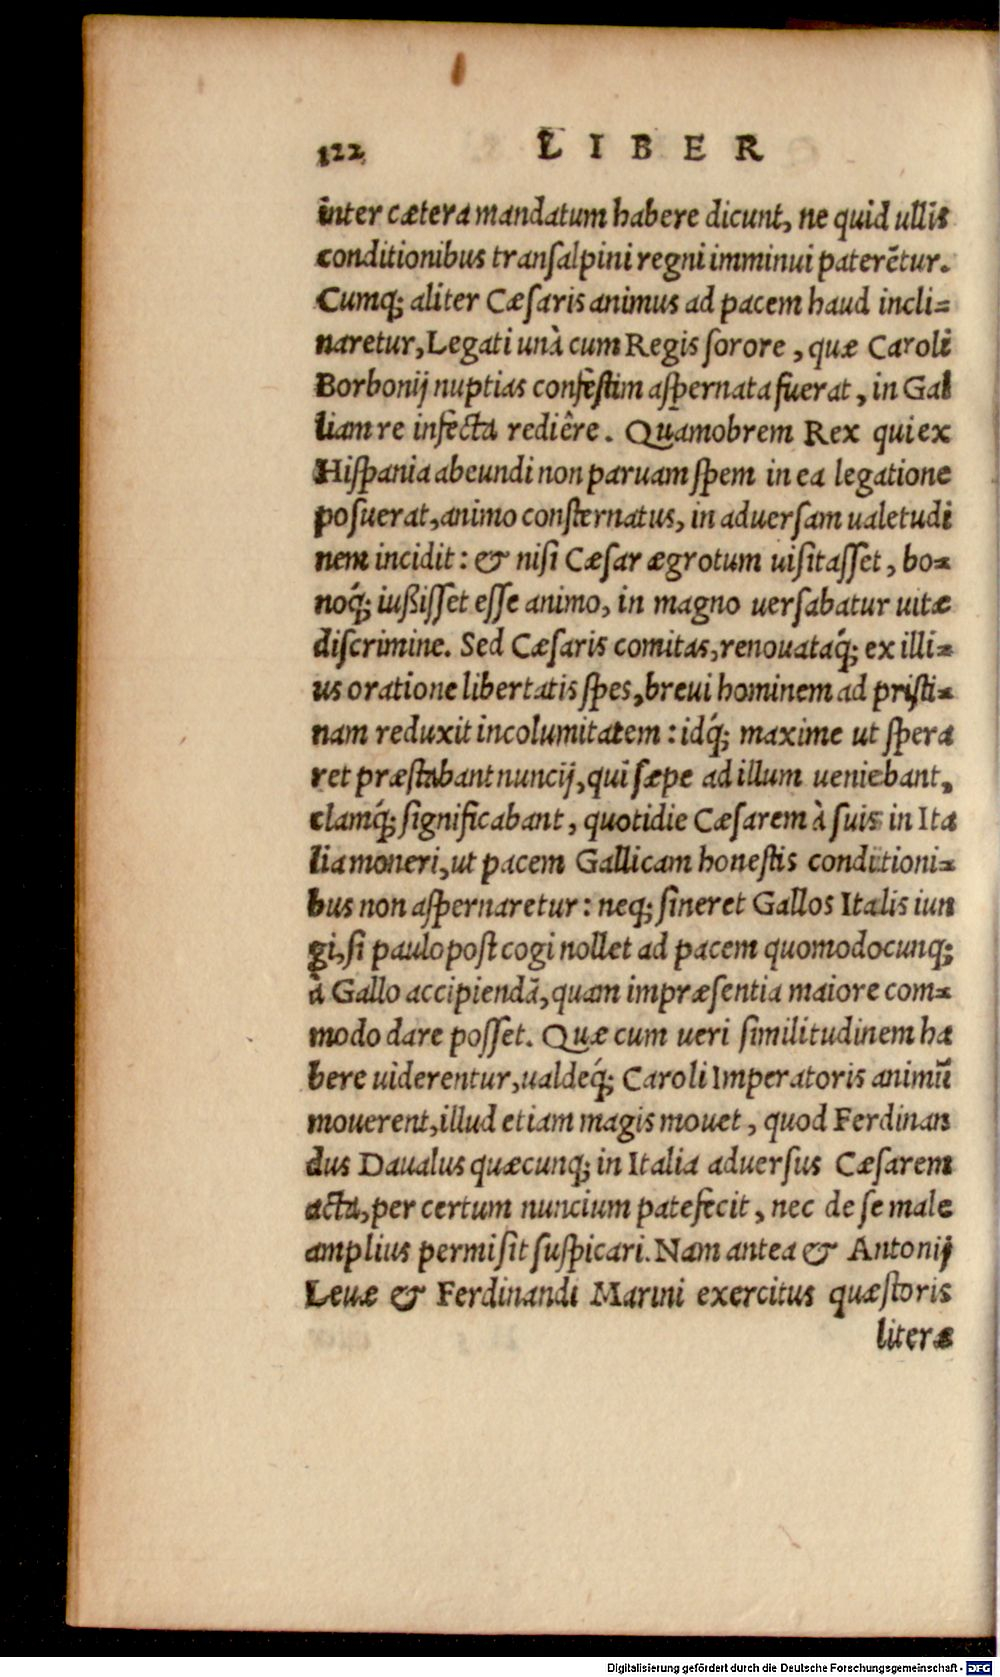 122 LIBER
inter cætera mandatum habere dicunt, ne quid ullis
conditionibus transalpini regni imminui paterẽtur.
Cumq́; aliter Cæsaris animus ad pacem haud incli=
naretur, Legati unà cum Regis sorore, quæ Caroli
Borbonij nuptias confestim aspernata fuerat, in Gal
liam re infecta rediêre. Quamobrem Rex qui ex
Hispania abeundi non paruam spem in ea legatione
posuerat, animo consternatus, in aduersam ualetudi
nem incidit: & nisi Cæsar ægrotum uisitasset, bo=
noq́; iußisset esse animo, in magno uersabatur uitæ
discrimine. Sed Cæsaris comitas, renouataq́; ex illi=
us oratione libertatis spes, breui hominem ad pristi=
nam reduxit incolumitatem: idq́; maxime ut spera
ret præstabant nuncij, qui sæpe ad illum ueniebant,
clamq́; significabant, quotidie Cæsarem à suis in Ita
lia moneri, ut pacem Gallicam honestis conditioni=
bus non aspernaretur: neq; sineret Gallos Italis iun
gi, si paulo post cogi nollet ad pacem quomodocunq;
à Gallo accipiendã, quam impræsentia maiore com=
modo dare posset. Quæ cum ueri similitudinem ha
bere uiderentur, ualdeq́; Caroli Imperatoris animũ
mouerent, illud etiam magis mouet, quod Ferdinan
dus Daualus quæcunq; in Italia aduersus Cæsarem
acta, per certum nuncium patefecit, nec de se male
amplius permisit suspicari. Nam antea & Antonij
Leuæ & Ferdinandi Marini exercitus quæstoris
literæ
Digitalisierung gefördert durch die Deutsche Forschungsgemeinschaft - DFG